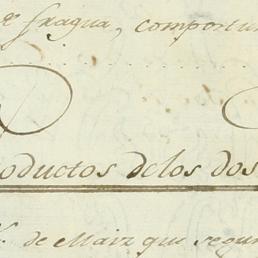 fragua, comportun
oductos delos dos
de Maiz que segun